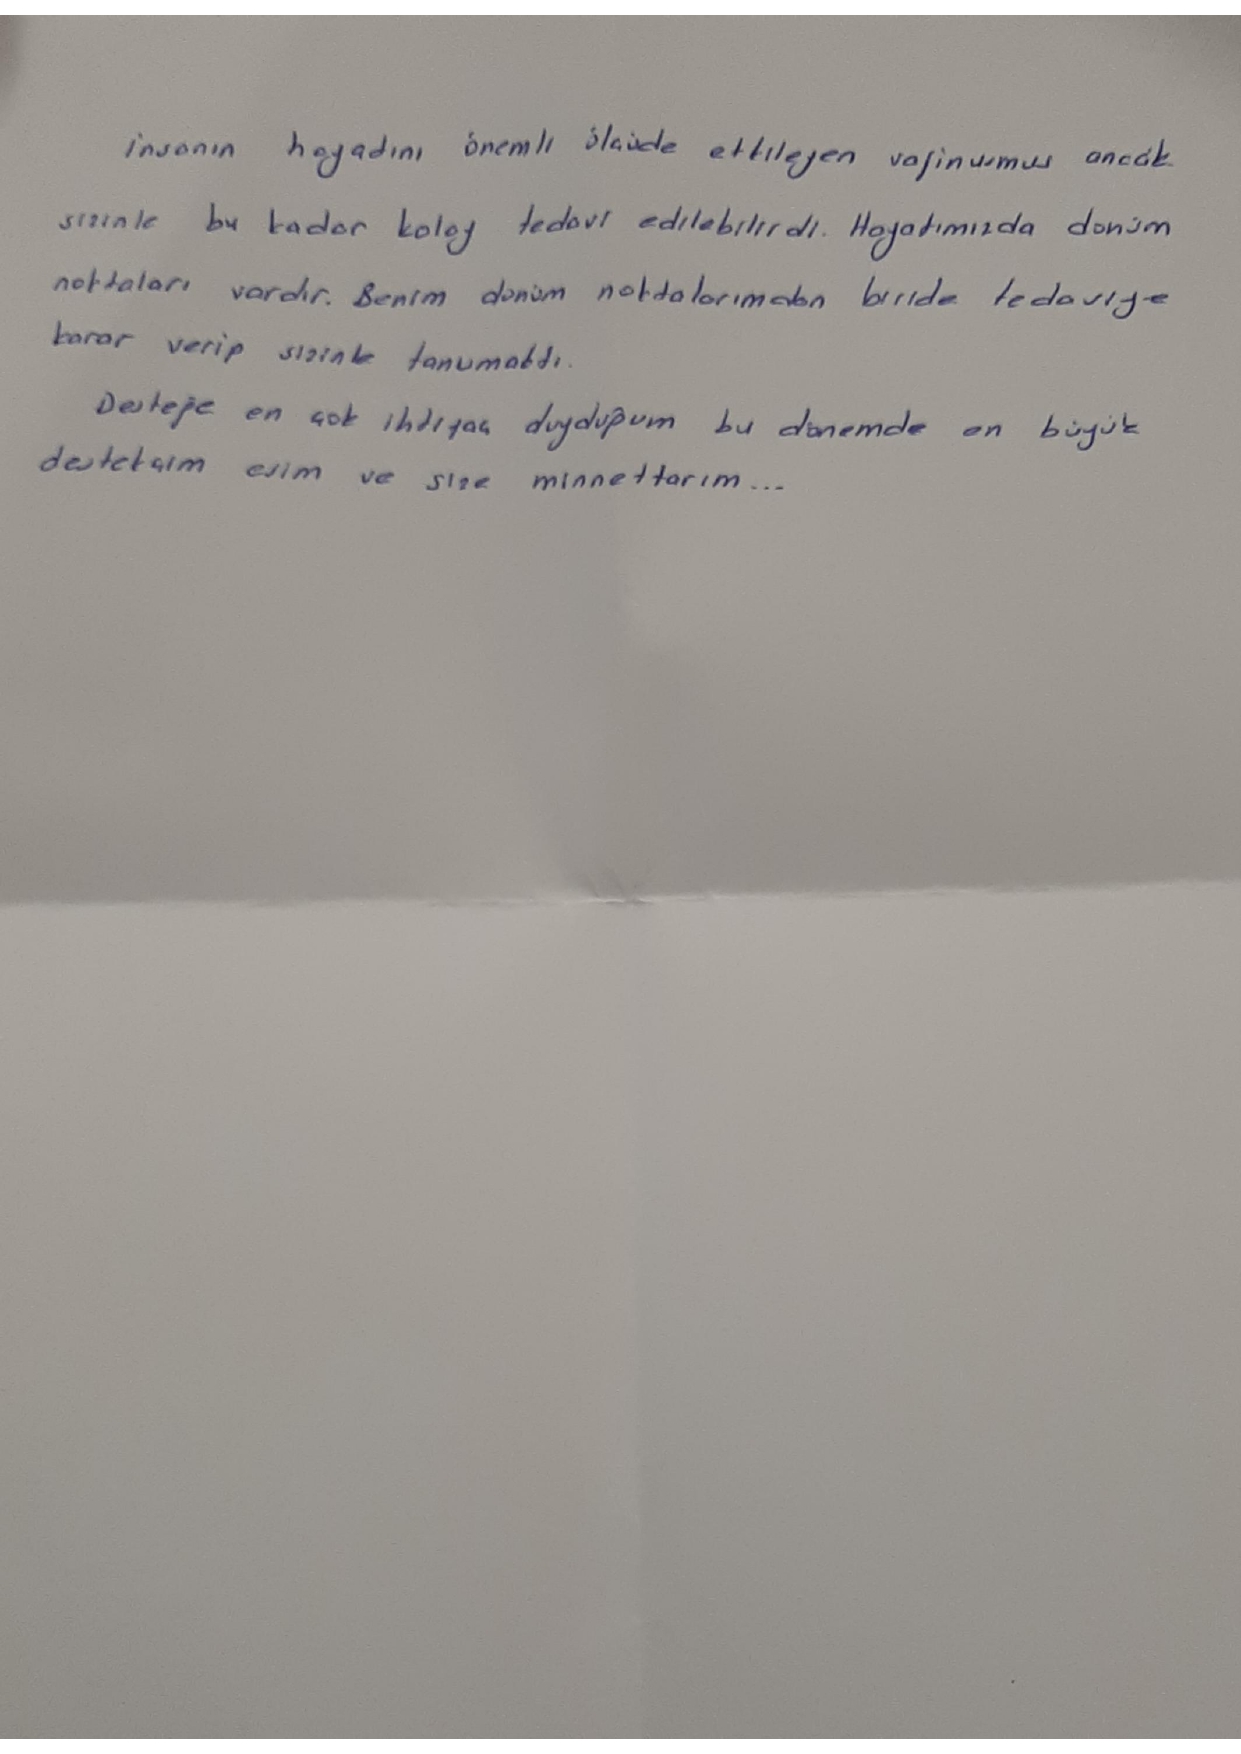 insanın hayadını önemli ölçüde etkileyen vajinusmus ancak
sizinle bu kadar kolay tedavi edilebilirdi. Hayatımızda dönüm
noktaları vardır. Benim dönüm noktalarımdan biride tedaviye
karar verip sizinle tanışmaktı.
Desteğe en çok ihtiyaç duyduğum bu dönemde en büyük
destekçim eşim ve size minnettarım...